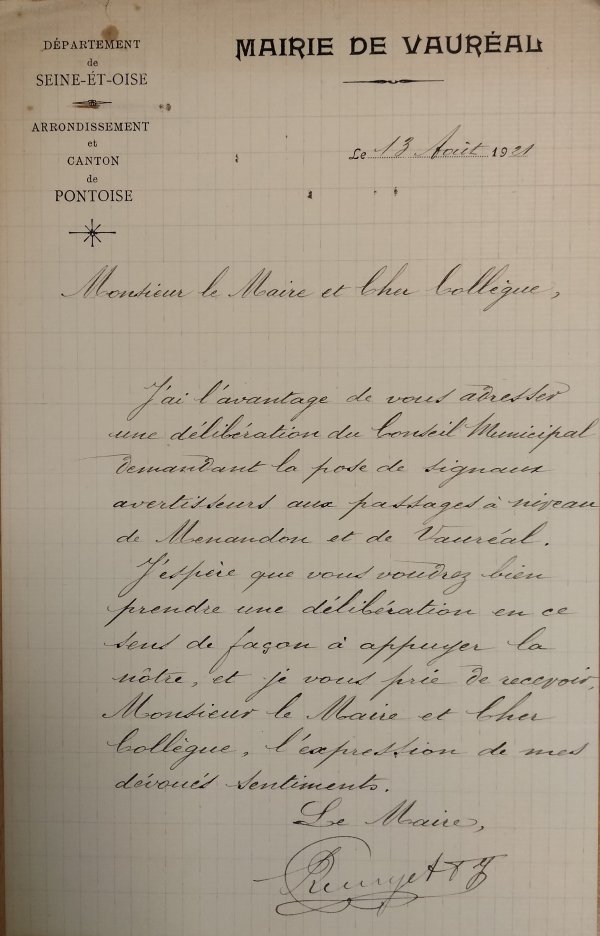 DÉPARTEMENT
de
SEINE-ET-OISE
ARRONDISSEMENT
et
CANTON
de
PONTOISE
MAIRIE DE VAURÉAL
Le 13 Août 1921
Monsieur le Maire et Cher Collègue,
J'ai l'avantage de vous adresser
une délibération du Conseil Municipal
demandant la pose de signaux
avertisseurs aux passages à niveau
de Menandon et de Vauréal.
J'espère que vous voudrez bien
prendre une délibération en ce
sens de façon à appuyer la
nôtre, et je vous prie de recevoir,
Monsieur le Maire et Cher
Collègue, l'expression de mes
dévoués sentiments.
Le Maire,